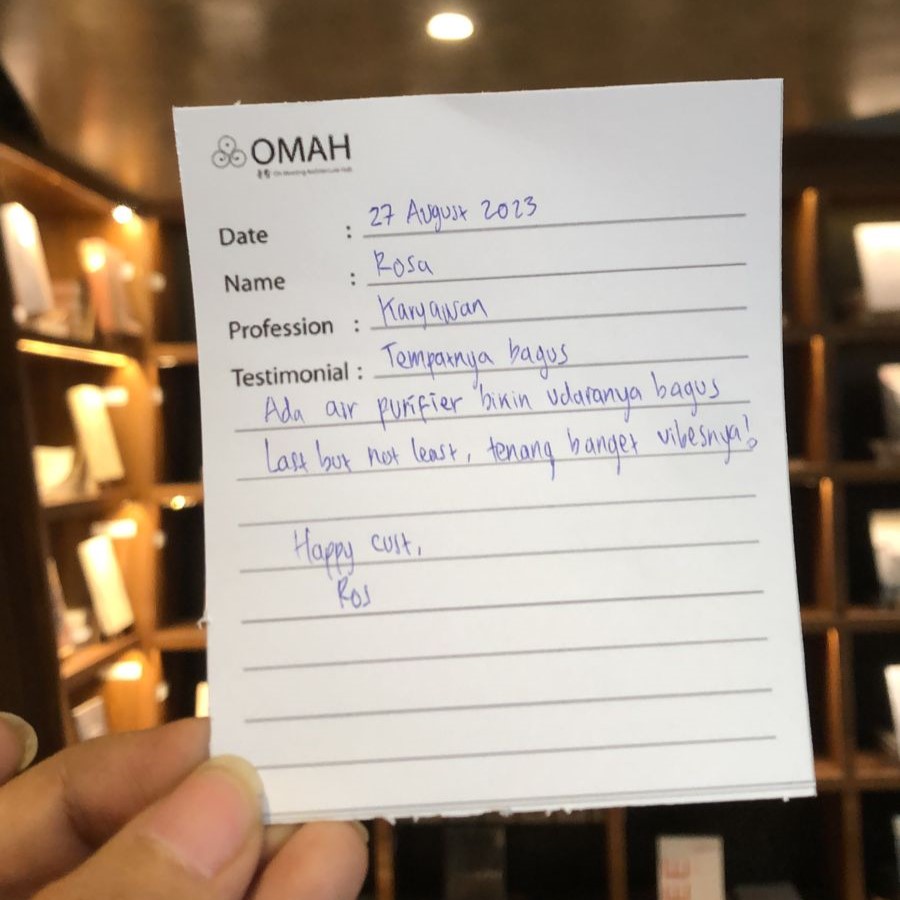 OMAH
Date : 27 August 2023
Name : Rosa
Profession : Karyawan
Testimonial : Tempatnya bagus
Ada air purifier bikin udaranya bagus
Last but not least, tenang banget vibesnya!
Happy cust,
Ros